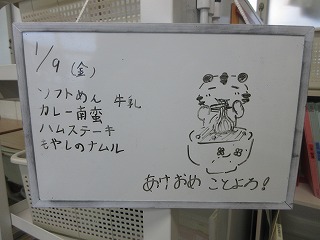 1/9(金)
ソフトめん 牛乳
カレー南蛮
ハムステーキ
もやしのナムル
あけおめ ことよろ!